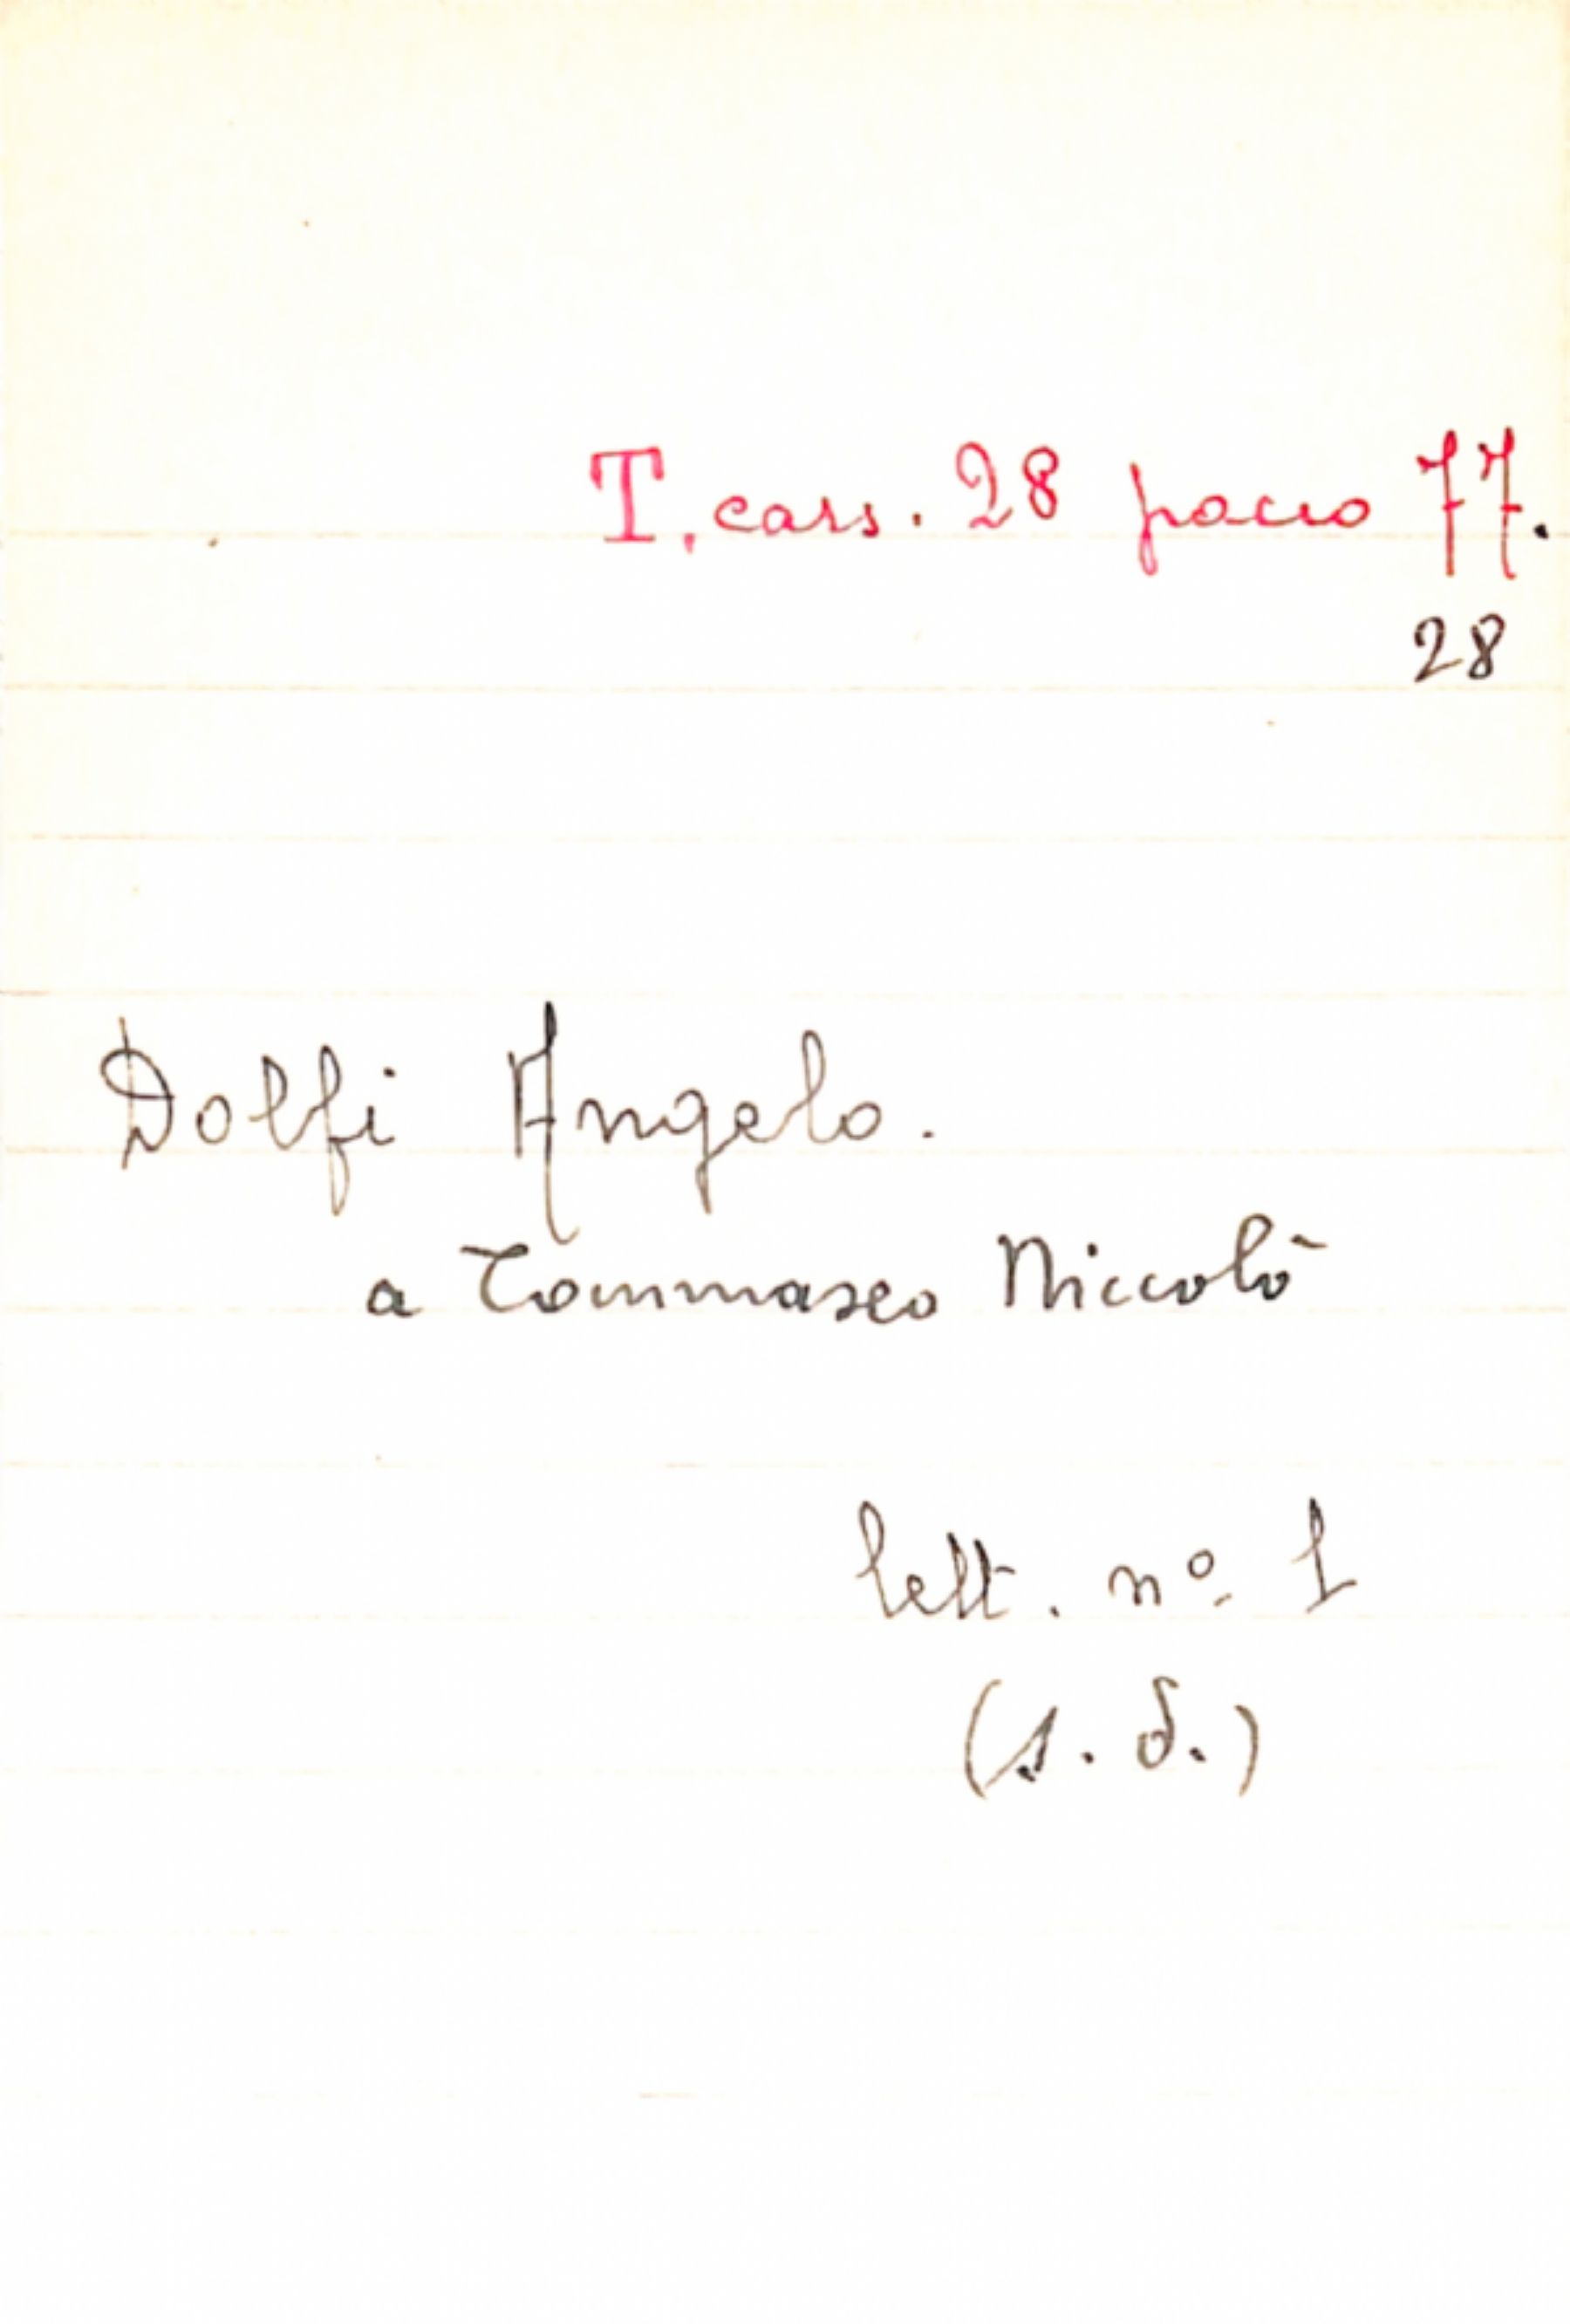 T. cass. 28 pacco 77.
28
Dolfi Angelo.
a Tommaseo Niccolò
lett. nº 1
(s. d.)